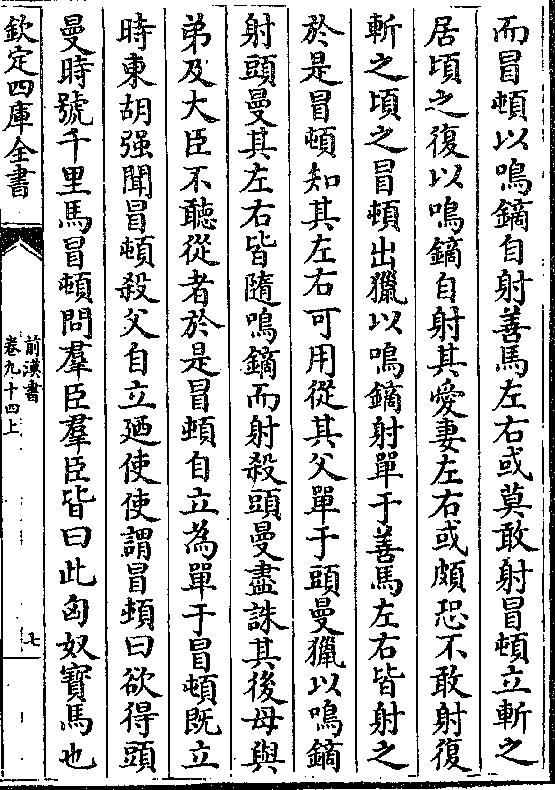 而冒頓以鳴鏑自射善馬左右或莫敢射冒頓立斬之
居頃之復以鳴鏑自射其愛妻左右或頗恐不敢射復
斬之頃之冒頓出獵以鳴鏑射單于善馬左右皆射之
於是冒頓知其左右可用從其父單于頭曼獵以鳴鏑
射頭曼其左右皆隨鳴鏑而射殺頭曼盡誅其後母與
弟及大臣不聽從者於是冒頓自立為單于冒頓既立
時東胡强聞冒頓殺父自立廼使使謂冒頓曰欲得頭
曼時號千里馬冒頓問羣臣羣臣皆曰此匈奴寶馬也
欽定四庫全書
前漢書
卷九十四上
七